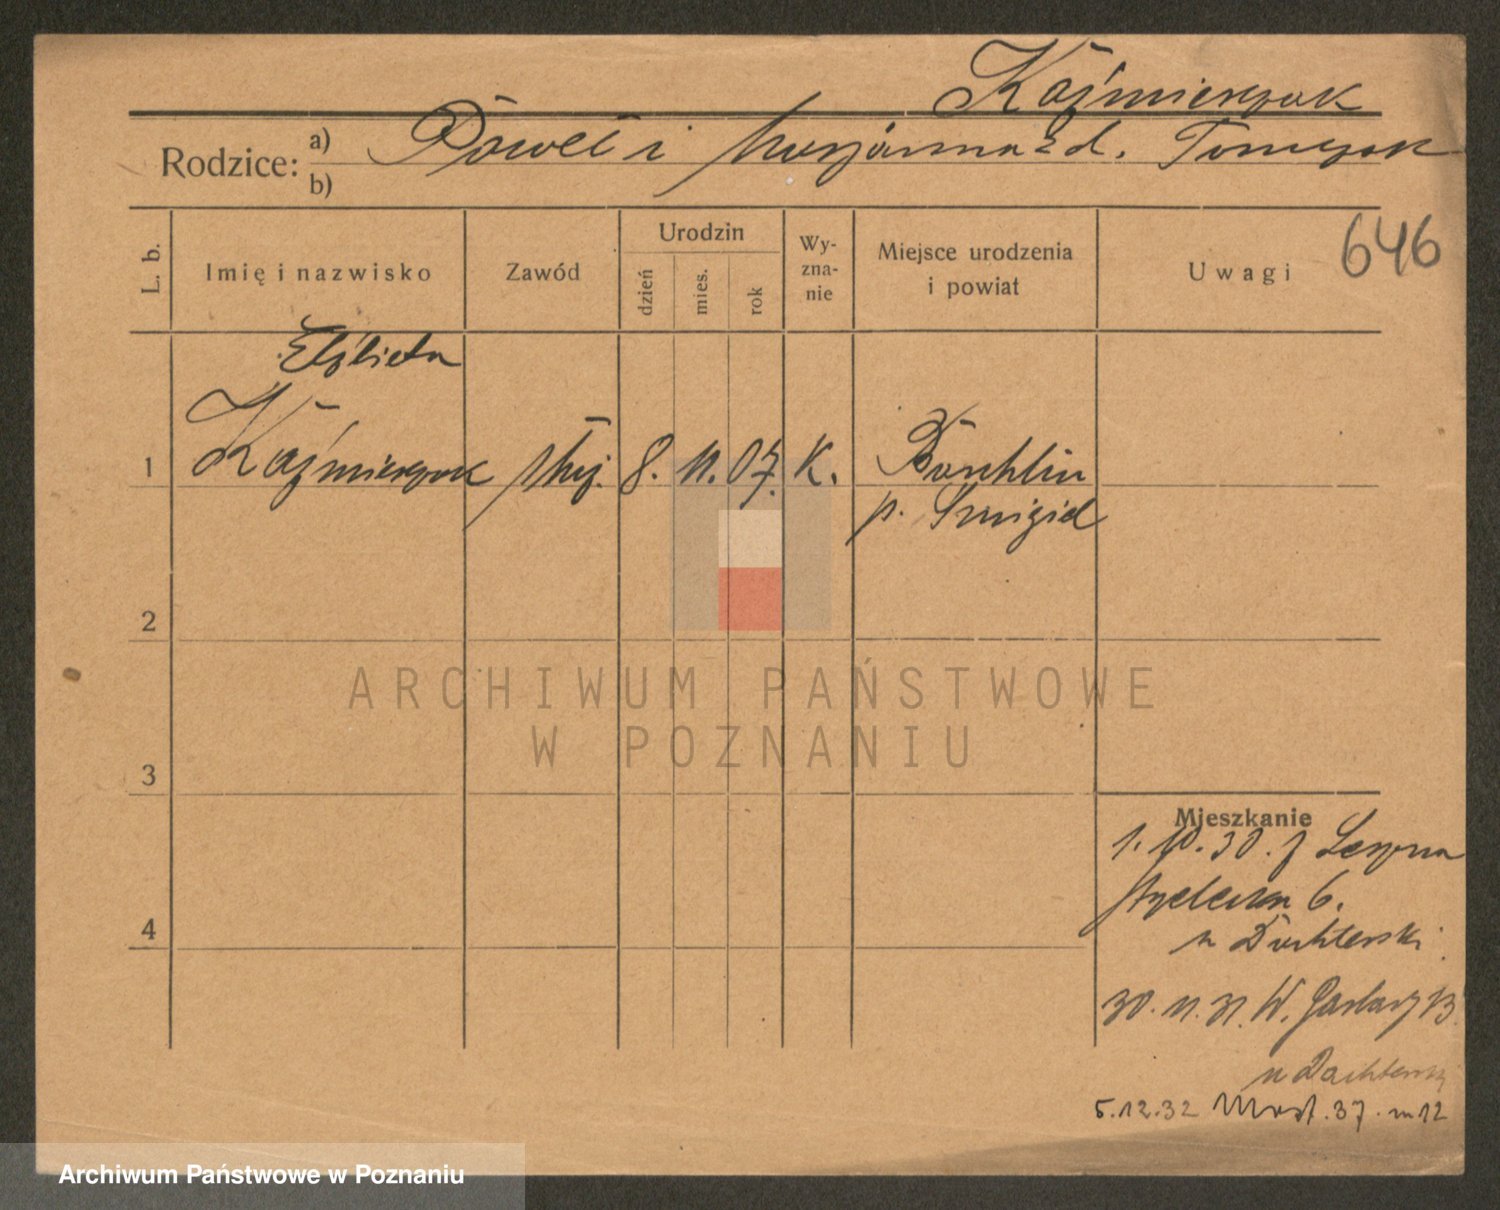 Kaźmierczak
Rodzice: a) Paweł i Marjanna zd. Tomczak
b)
646
L. b. Imię i nazwisko Zawód Urodzin dzień mies. rok Wyznanie Miejsce urodzenia i powiat Uwagi
Elżbieta
1 Kaźmierczak służ. 8. 11. 07. K. Buschlin
p. Szmigiel
2
ARCHIWUM PAŃSTWOWE
W POZNANIU
3
Mieszkanie
1. 10. 30. z Leszna
Strzelecka 6.
u Duchterski
4
30. 11. 31. W. Garbary 13.
u Dachterski
5.12.32 Most. 37. m 12
Archiwum Państwowe w Poznaniu